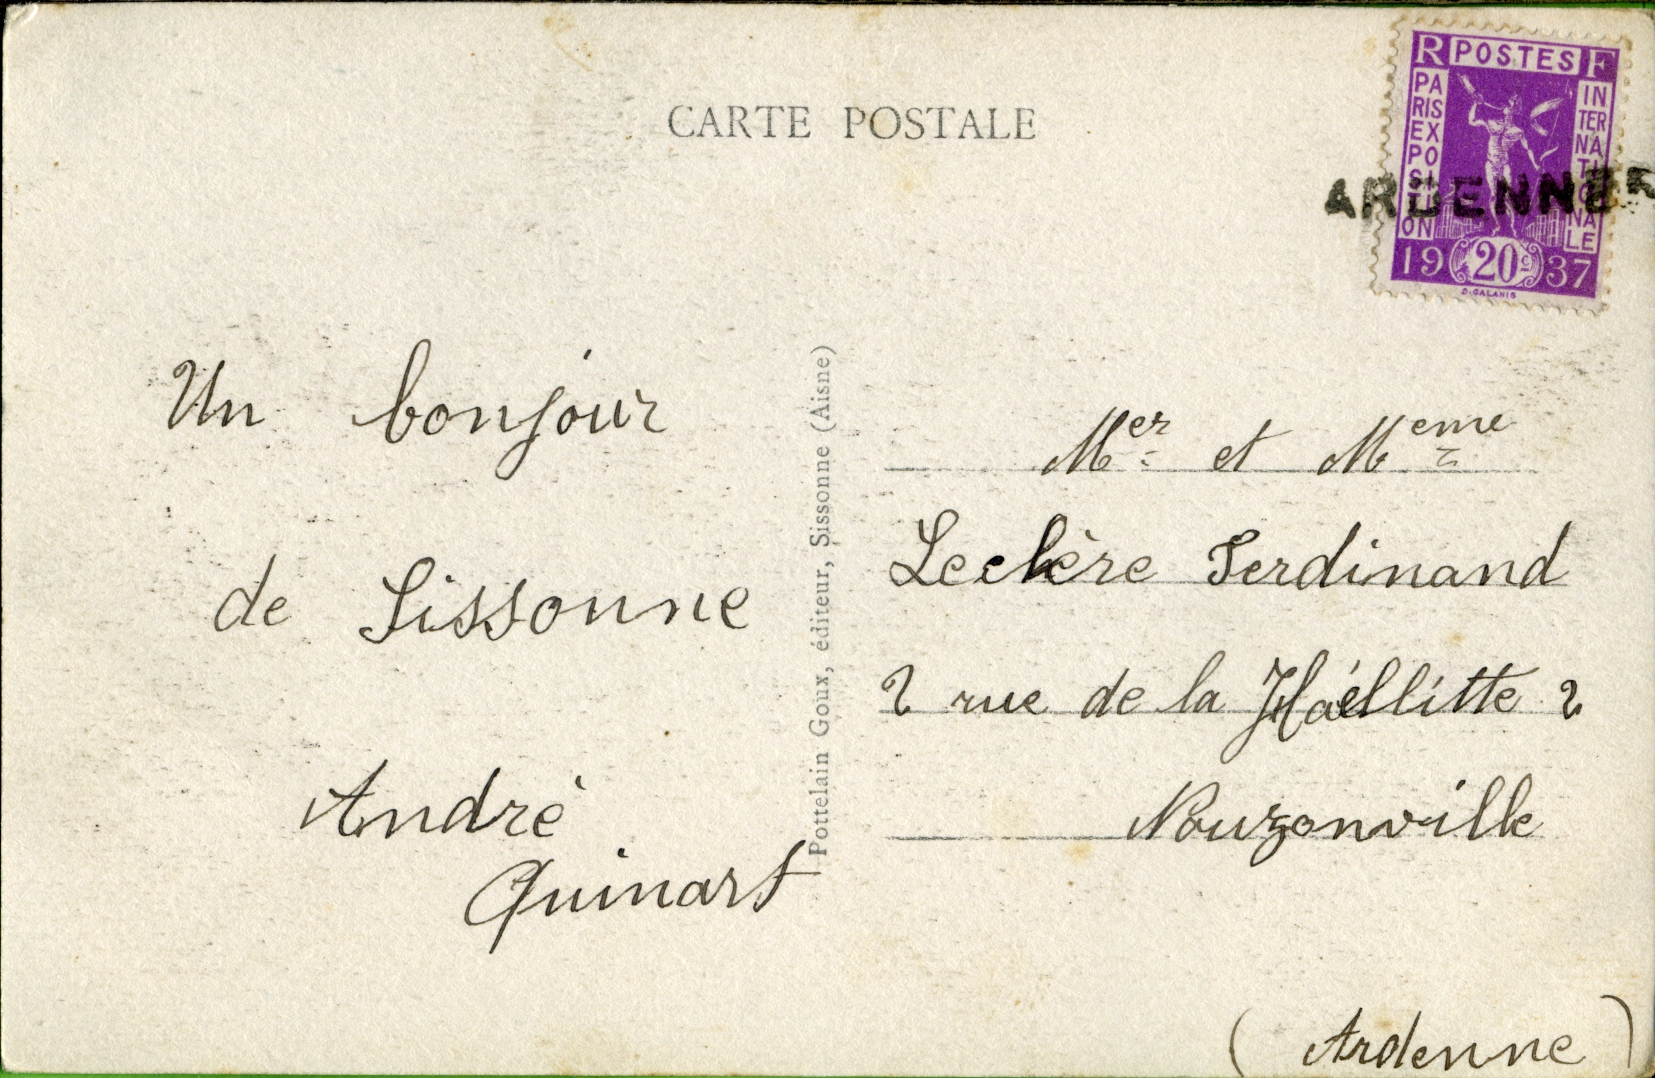 CARTE POSTALE
R POSTES F
PARIS EXPOSITION
INTERNATIONALE
19 20c 37
D. GALANIS
ARDENNES
Un bonjour
de Sissonne
André
Quinart
Pottelain Goux, éditeur, Sissonne (Aisne)
Mer et Meme
Leclère Ferdinand
2 rue de la 2
Nouzonville
(Ardenne)